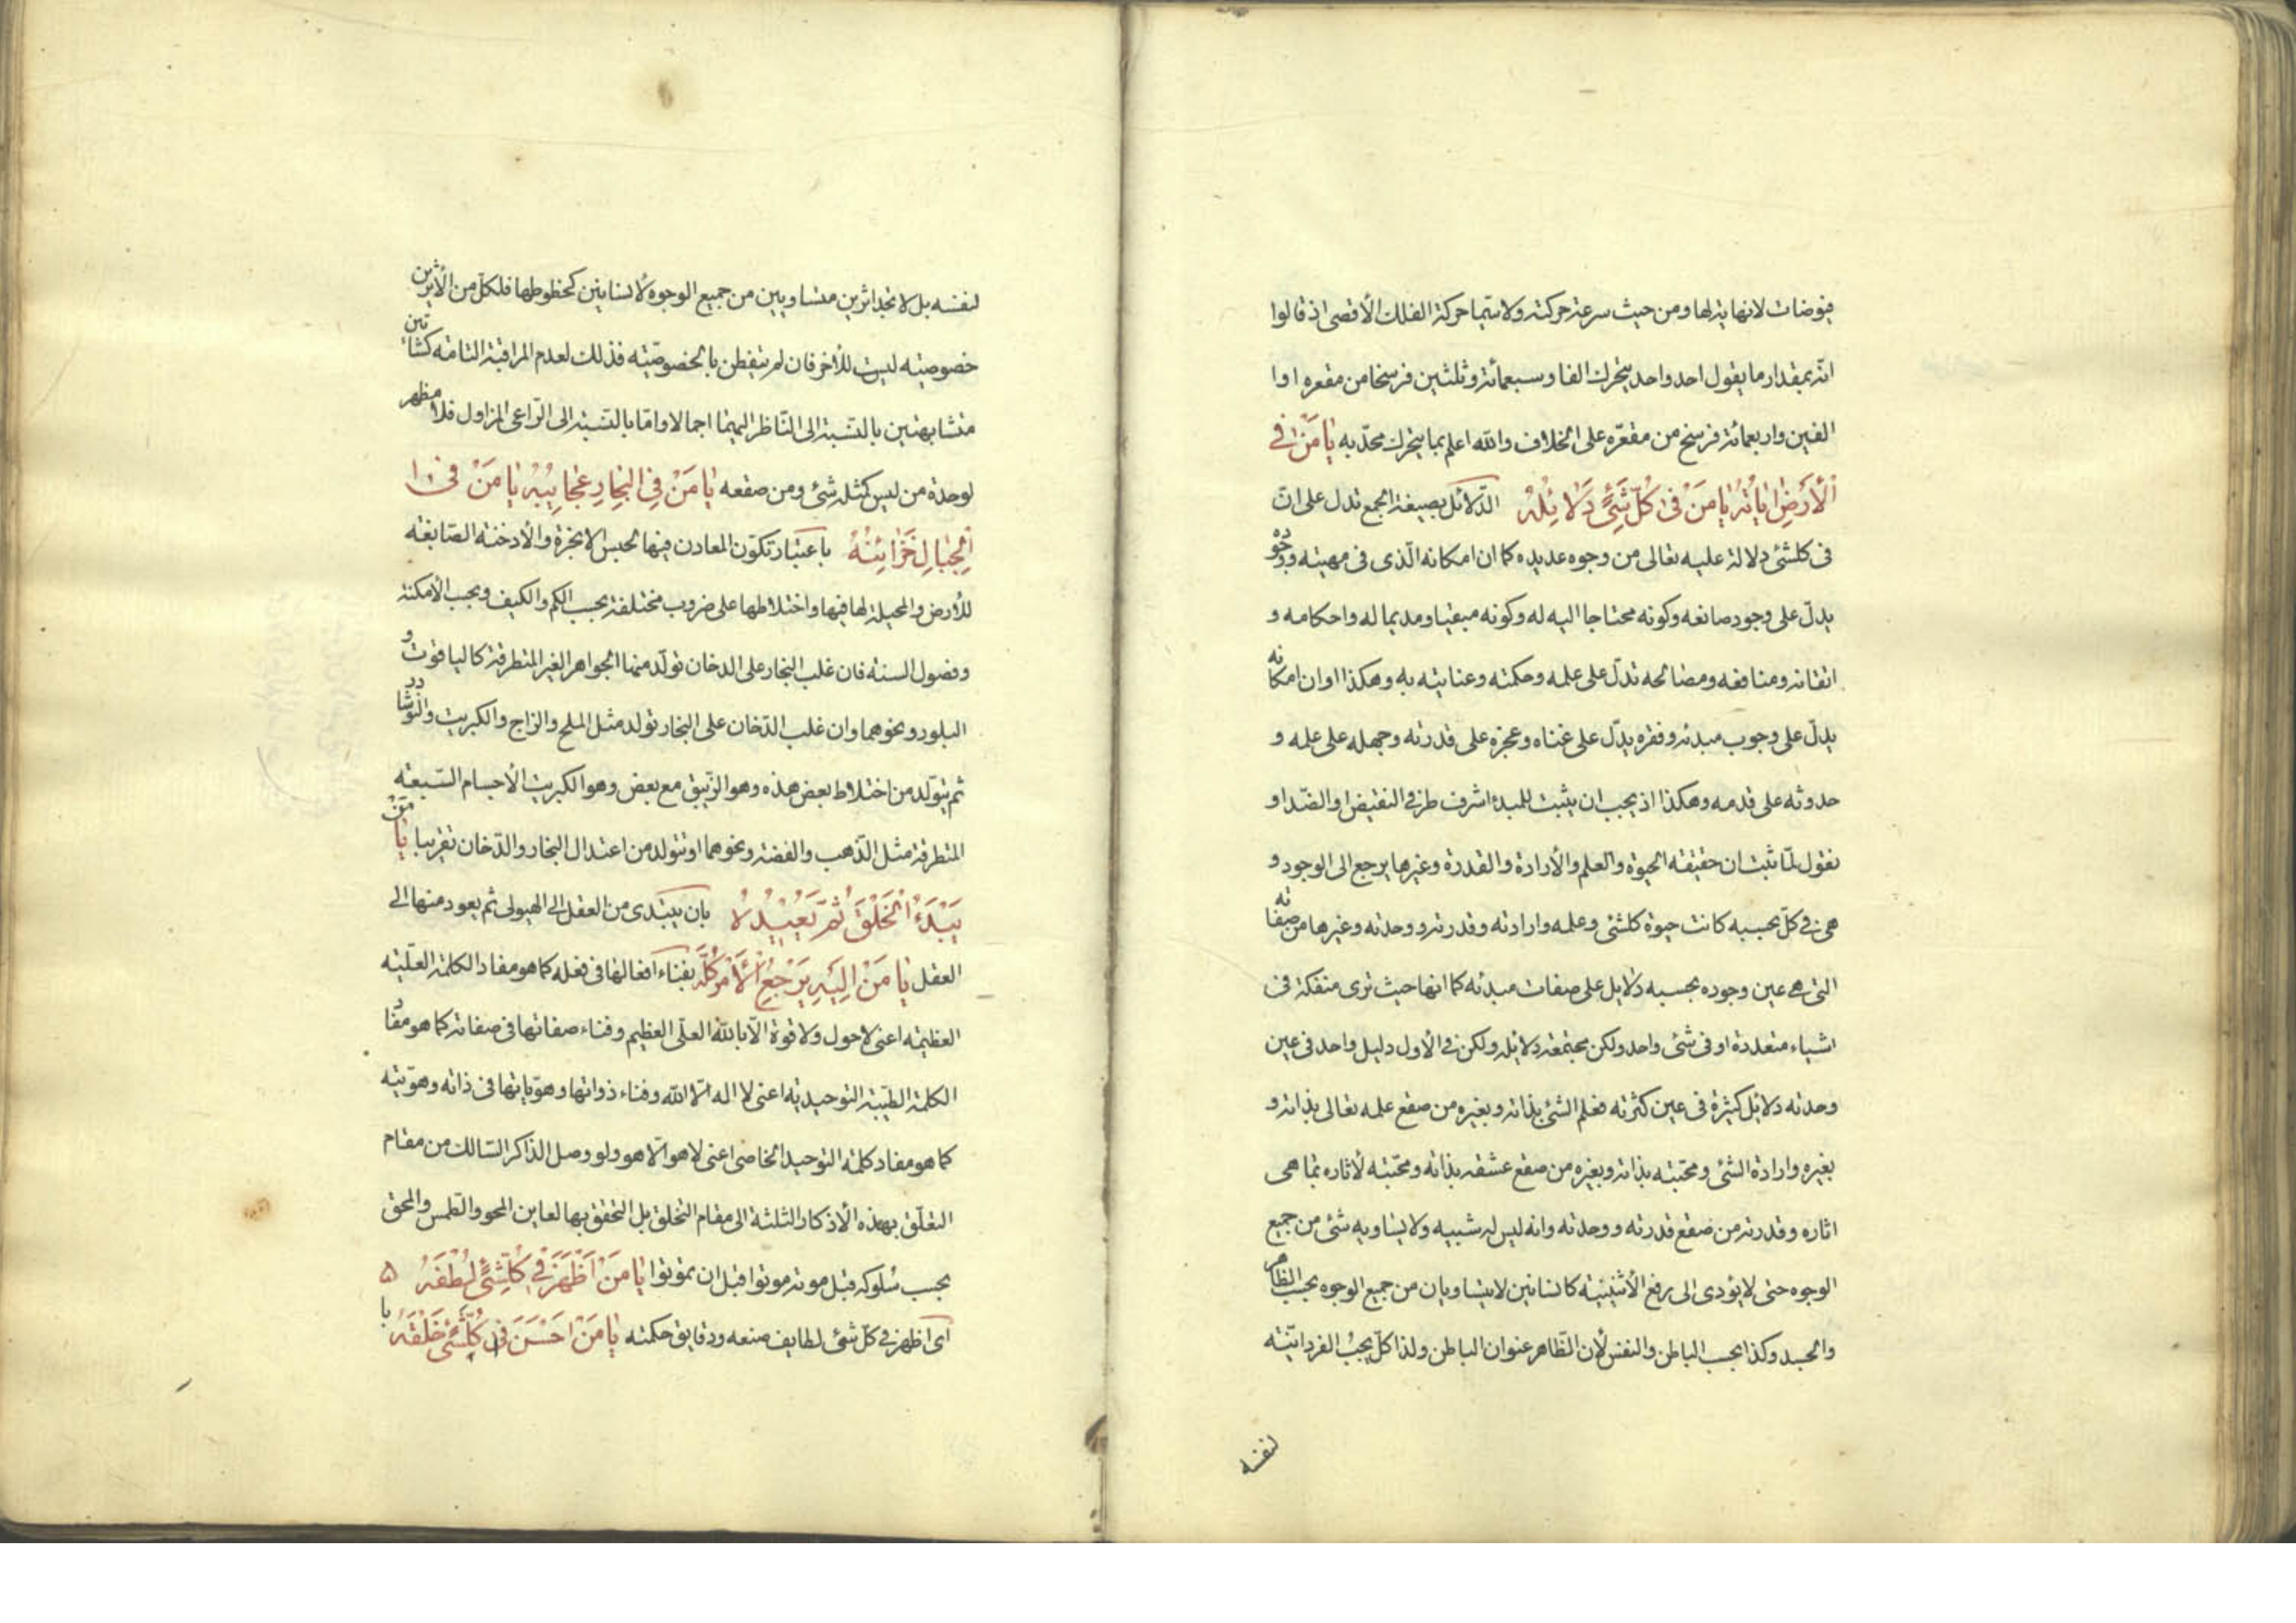 فيوضات لانهاية لها ومن حيث سرعة حركته ولا سيّما حركة الفلك الأقصى اذ قالوا
انّه بمقدار ما يقول احد واحد يتحرك الفا وسبعمائة وثلثين فرسخا من مقعره اوا
الفين واربعمائة فرسخ من مقعّره على الخلاف والله اعلم بما يتحرك محدّبه يا مَنْ في
الْأرَضِ اٰياتُهُ يا مَنْ فى كُلِّ شَيْءٍ دَلائِلُهُ الدّلائل بصيغة الجمع تدل على انّ
فى كلشئ دلالة عليه تعالى من وجوه عديده كما ان امكانه الّذى فى مهيته ووجوده
يدلّ على وجود صانعه وكونه محتاجا اليه له وكونه مبقيا ومديما له واحكامه و
اتقانه ومنافعه ومصالحه تدلّ على علمه وحكمته وعنايته به وهكذا اوان امكانه
يدلّ على وجوب مبدئه وفقره يدّل على غناه وعجزه على قدرته وجهله على علمه و
حدوثه على قدمه وهكذا اذ يجب ان يثبت للمبدء اشرف طرفي النقيض او الضّد او
نقول لمّا ثبت ان حقيقة الحيوة والعلم والأرادة والقدرة وغيرها يرجع الى الوجود و
هى في كلّ بحسبه كانت حيوة كلشئ وعلمه وارادته وقدرته ووحدته وغيرها من صفاته
التى هى عين وجوده بحسبه دلايل على صفات مبدئه كما انها حيث ترى منفكة فى
اشياء متعددة او فى شئ واحد ولكن مجتمعة دلايله ولكن في الأول دليل واحد فى عين
وحدته دلايل كثيرة فى عين كثرته فعلم الشئ بذاته وبغيره من صقع علمه تعالى بذاته و
بغيره وارادة الشئ ومحبّته بذاته وبغيره من صقع عشقه بذاته ومحبّته لأثاره بما هى
اثاره وقدرته من صقع قدرته ووحدته وانه ليس له شبيه ولا يساويه شئ من جميع
الوجوه حتى لا يؤدى الى رفع الأثنينية كانسانين لا يتساويان من جميع الوجوه بحسب الظاهر
والجسد وكذا بحسب الباطن والنفس لأن الظّاهر عنوان الباطن ولذا كلّ يحبّ الفردانيّة
لنفسه
لنفسه بل لا تجد اثرين متساويين من جميع الوجوه لأنسانين كخطوطها فلكل من الأثرين
خصوصيته ليست للأخر فان لم يتفطن بالخصوصيّته فذلك لعدم المراقبة التامة كشاتين
متشابهتين بالنسّبة الى النّاظر اليهما اجمالا وامّا بالنسّبة الى الرّاعى المزاول فلا مظهر
لوحدة من ليس كمثله شئ ومن صقعه يا مَنْ فِى الْبِحارِ عَجائِبُهُ يا مَنْ فى
الْجِبالِ خَزائِنُهُ باعتبار تكوّن المعادن فيها لحبس الابخرة والأدخنة الصّابغة
للأرض والمحيلة لها فيها واختلاطها على ضروب مختلفة بحسب الكم والكيف وبحب الأمكنة
وفصول السنة فان غلب البخار على الدخان تولّد منها الجواهر الغير المتطرقة كالياقوت و
البلور ونحوهما وان غلب الدّخان على البخار تولد مثل الملح والزاج والكبريت والنّوشادر
ثم يتوّلد من اختلاط بعض هذه وهو الزّيبق مع بعض وهو الكبريت الأجسام السّبعة
المتطرقة مثل الذّهب والفضة ونحوهما او تتولد من اعتدال البخار والدّخان تقريبا يا مَنْ
يَبْدَءُ الْخَلْقَ ثُمَّ يُعيدُهُ بان يبتدى من العقل الى الهيولى ثم يعود منها الى
العقل يا مَنْ اِلَيْهِ يَرْجِعُ الْأَمْرُ كُلُّهُ بفناء افعالها فى فعله كما هو مفاد الكلمة العليّة
العظيمة اعنى لا حول ولا قوة الّا بالله العلّى العظيم وفناء صفاتها فى صفاته كما هو مفاد
الكلمة الطيّبة التوحيدية اعنى لا اله الّا الله وفناء ذواتها وهوّياتها فى ذاته وهوّيته
كما هو مفاد كلمة التوحيد الخاصى اعنى لا هو الّا هو ولو وصل الذّاكر السّالك من مقام
التعلّق بهذه الأذكار الثلثة الى مقام التخلق بل التحقق بها لعاين المحو والطّمس والمحق
بحسب سلوكه قبل موته موتوا قبل ان تموتوا يا مَنْ اَظْهَرَ في كُلِّشَيْءٍ لُطْفَهُ
اى اظهر في كلّ شئ لطايف صنعه ودقايق حكمته يا مَنْ اَحْسَنَ فى كُلِّشَيْءٍ خَلْقَهُ يا